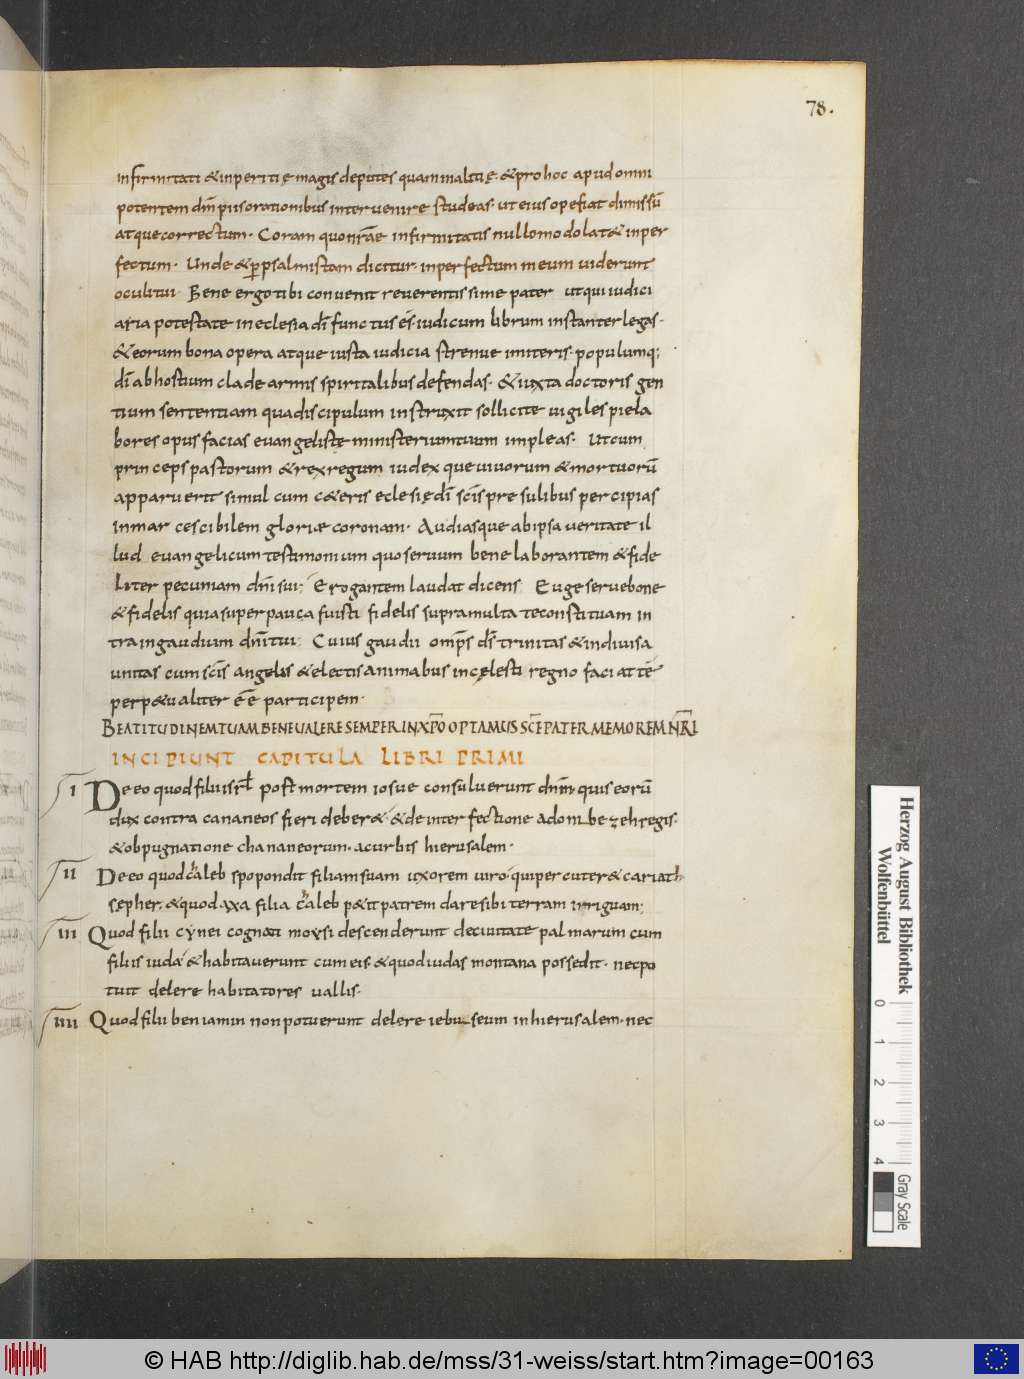 78.
infirmitati & inperitię magis deputes quam malitię. & pro hoc apud omni
potentem dm̄ piis orationibus intervenire studeas. ut eius ope fiat dimissū
atque correctum. Coram quo nr̄ae infirmitatis nullomodo lat& inper
fectum. Unde & ꝑ psalmistam dicitur. inperfectum meum viderunt
oculi tui. Bene ergo tibi convenit reverentissime pater ut qui iudici
aria potestate in eclesia dī functus és. iudicum librum instanter legas.
& eorum bona opera atque iusta iudicia strenue imiteris. populumq;
dī ab hostium clade armis spiritalibus defendas. & iuxta doctoris gen
tium sententiam qua discipulum instruxit sollicite vigiles pie la
bores opus facias evangelistę ministerium tuum impleas. Ut cum
princeps pastorum & rex regum iudex que vivorum & mortuorū
apparuerit simul cum c&eris eclesię dī scīs presulibus percipias
inmarcescibilem gloriæ coronam. Audiasque ab ipsa veritate il
lud evangelicum testimonium quo servum bene laborantem & fide
liter pecuniam dn̄i sui; Erogantem laudat dicens; Euge serve bone
& fidelis quia super pauca fuisti fidelis supra multa te constituam in
tra in gaudium dn̄i tui; Cuius gaudii omp̄s ds̄ trinitas & indivisa
unitas cum scīs angelis & electis animabus in cęlesti regno faciat tē
perp&ualiter ēē participem.
BEATITUDINEM TUAM BENE VALERE SEMPER IN XP̄O OPTAMUS SC̄E PATER MEMOREM NR̄I
INCIPIUNT CAPITULA LIBRI PRIMI
I De eo quod filii isrl̄ post mortem iosue consuluerunt dnm̄. quis eorū
dux contra cananeos fieri deber&. & de interfectione adonibezeh regis.
& obpugnatione chananeorum. ac urbis hierusalem.
II De eo quod chaleb spopondit filiam suam uxorem viro. qui percuter& cariath
sepher. & quod axa filia chaleb p&it patrem dare sibi terram irriguam;
III Quod filii cynei cognati moysi descenderunt de civitate palmarum cum
filiis iuda. & habitaverunt cum eis. & quod iudas montana possedit. nec po
tuit delere habitatores vallis.
IIII Quod filii beniamin non potuerunt delere iebuseum in hierusalem. nec
Herzog August Bibliothek
Wolfenbüttel
0 1 2 3 4
Gray Scale
© HAB http://diglib.hab.de/mss/31-weiss/start.htm?image=00163